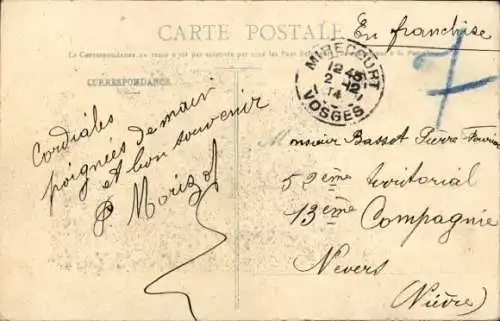 CARTE POSTALE
En franchise
La Correspondance au recto n'est pas acceptée par tous les Pays
CORRESPONDANCE
MIRECOURT
12 45
2 -12
14
VOSGES
Cordiales
poignées de main
et bon souvenir
P. Morizot
Monsieur Bassot Pierre
52eme territorial
13ème Compagnie
Nevers
(Nièvre)